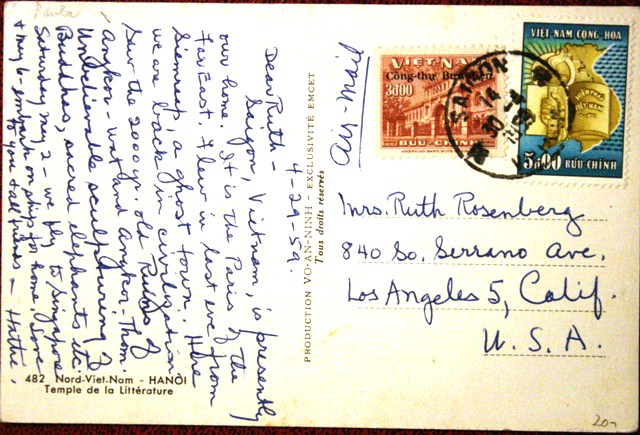 Paula
4-29-59.
Dear Ruth -
Saigon, Vietnam, is presently
our home. It is the Paris of the
Far East. Flew in last eve from
Siemreap, a ghost town. Here
we are back in civilization.
Saw the 2000 yr. old Ruins of
Angkor-Wat and Angkor-Thom.
Unbelievable sculpturing of
Buddhas, sacred elephants etc.
Saturday May 2 - we fly to Singapore
& May 6 - embark on ship for home. Love
to you & all friends -
482 Nord-Viet-Nam - HANOI
Temple de la Littérature
PRODUCTION VO-AN-NINH - EXCLUSIVITÉ EMCET
Tous droits réservés
air-mail
VIET-NAM
Công-thự Bưu-điện
3đ00
BƯU-CHÍNH
SAIGON
14
30
VIỆT-NAM CỘNG-HÒA
HIẾN PHÁP
VIỆT-NAM
5đ00 BƯU CHÍNH
Mrs. Ruth Rosenberg
840 So. Serrano Ave.
Los Angeles 5, Calif.
U.S.A.
20-